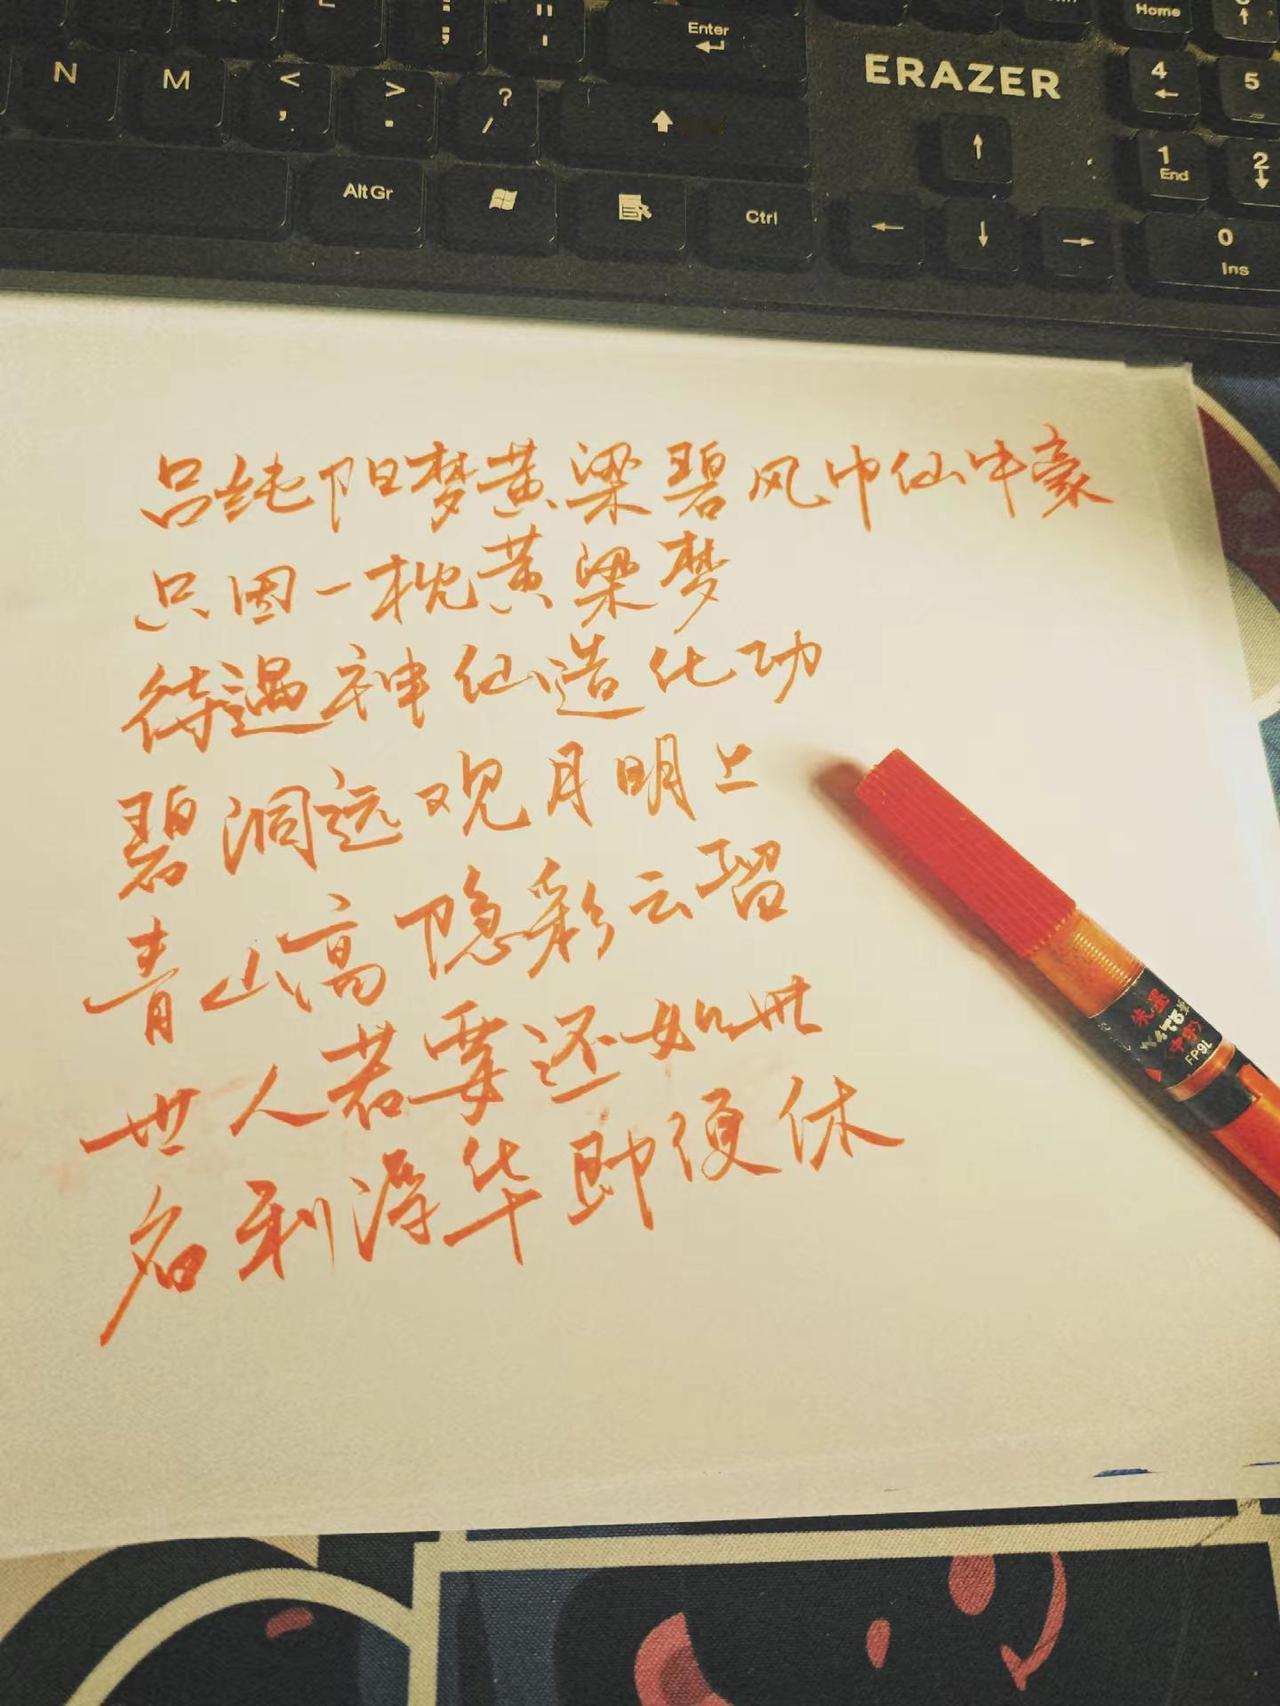 Enter
ERAZER
Home
N
M
<
,
>
.
?
/
4
5
1
End
2
Alt Gr
Ctrl
0
Ins
吕纯阳梦黄梁碧风巾仙中豪
只因一枕黄梁梦
待遇神仙造化功
碧洞远观月明上
青山高隐彩云留
世人若要还如此
名利浮华即便休
朱墨
中彩
FP9L